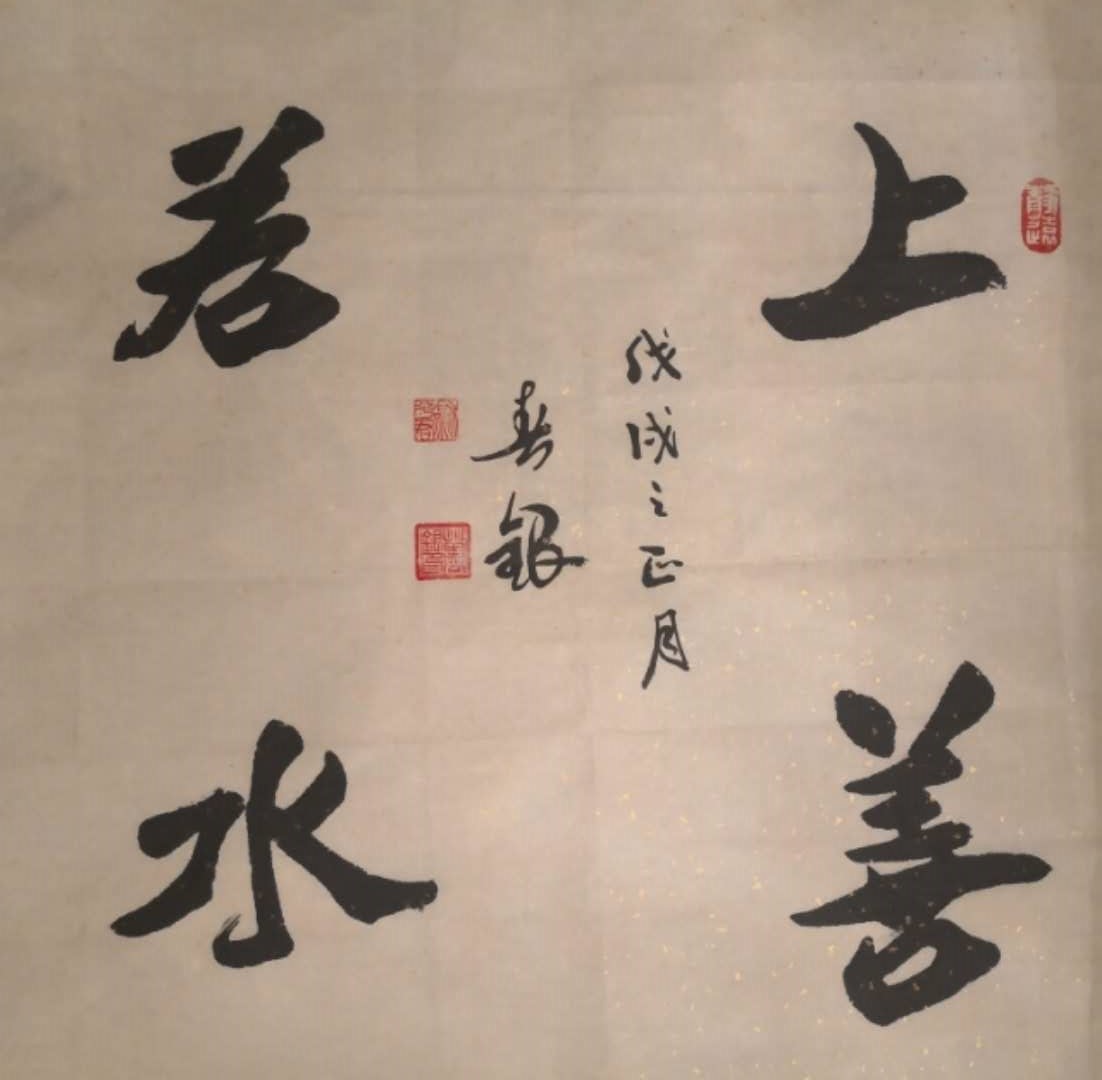 上善
若水
戊戌之正月
春银